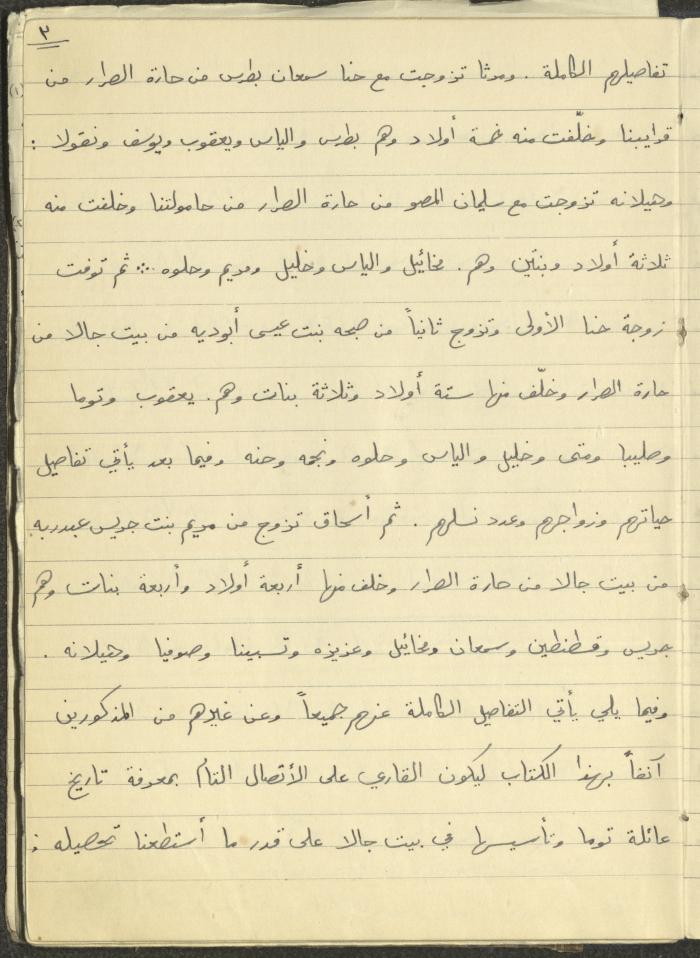 ٣
تفاصيلهم الكاملة . ومرثا تزوجت مع حنا سمعان بطرس من حارة الصرار من
قرايبنا وخلّفت منه خمسة أولاد وهم بطرس والياس ويعقوب ويوسف ونقولا :
وهيلانه تزوجت مع سليمان المصو من حارة الصرار من حامولتنا وخلفت منه
ثلاثة أولاد وبنتين وهم . مخائيل والياس وخليل ومريم وحلوه ∴ ثم توفت
زوجة حنا الأولى وتزوج ثانياً من صبحه بنت عيسى أبوديه من بيت جالا من
حارة الصرار وخلّف منها ستة أولاد وثلاثة بنات وهم . يعقوب وتوما
وصليبا ومتى وخليل والياس وحلوه ونجمه وحنه وفيما بعد يأتي تفاصيل
حياتهم وزواجهم وعدد نسلهم . ثم أسحاق تزوج من مريم بنت جريس عبدربه
من بيت جالا من حارة الصرار وخلف منها أربعة أولاد وأربعة بنات وهم
جريس وقسطنطين وسمعان ومخائيل وعزيزه وتسبينا وصوفيا وهيلانه .
وفيما يلي يأتي التفاصيل الكاملة عنهم جميعاً وعن غيرهم من المذكورين
آنفاً بهذا الكتاب ليكون القاري على الأتصال التام بمعرفة تاريخ
عائلة توما وتأسيسها في بيت جالا على قدر ما أستطعنا تحصيله :